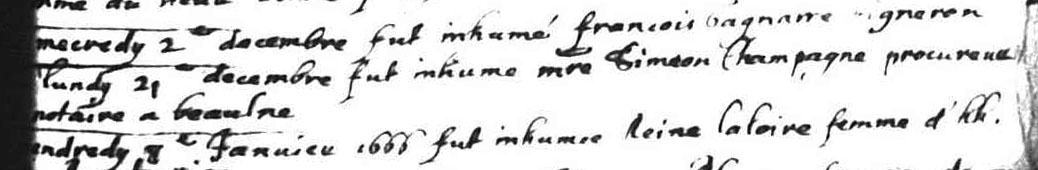 mecredy 2e decembre fut inhumé francois gagnarre vigneron
lundy 21e decembre fut inhume mre Simeon Champagne procureur
notaire a beaulne
endredy 8e Januier 1666 fut inhumee Reine laloire femme d'